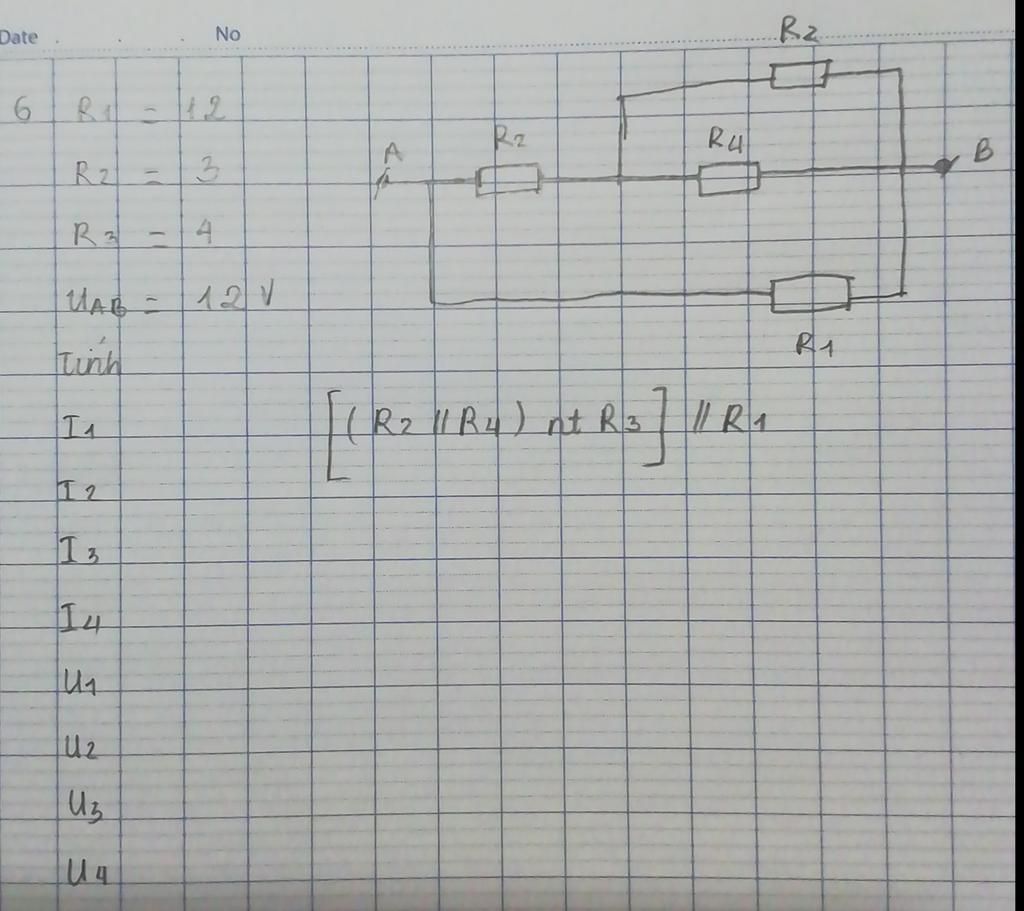 Date No
6 R1 = 12
R2 = 3
R3 = 4
UAB = 12 V
Tính
I1
I2
I3
I4
U1
U2
U3
U4
R2
A R2 R4 B
R1
[(R2 // R4) nt R3] // R1